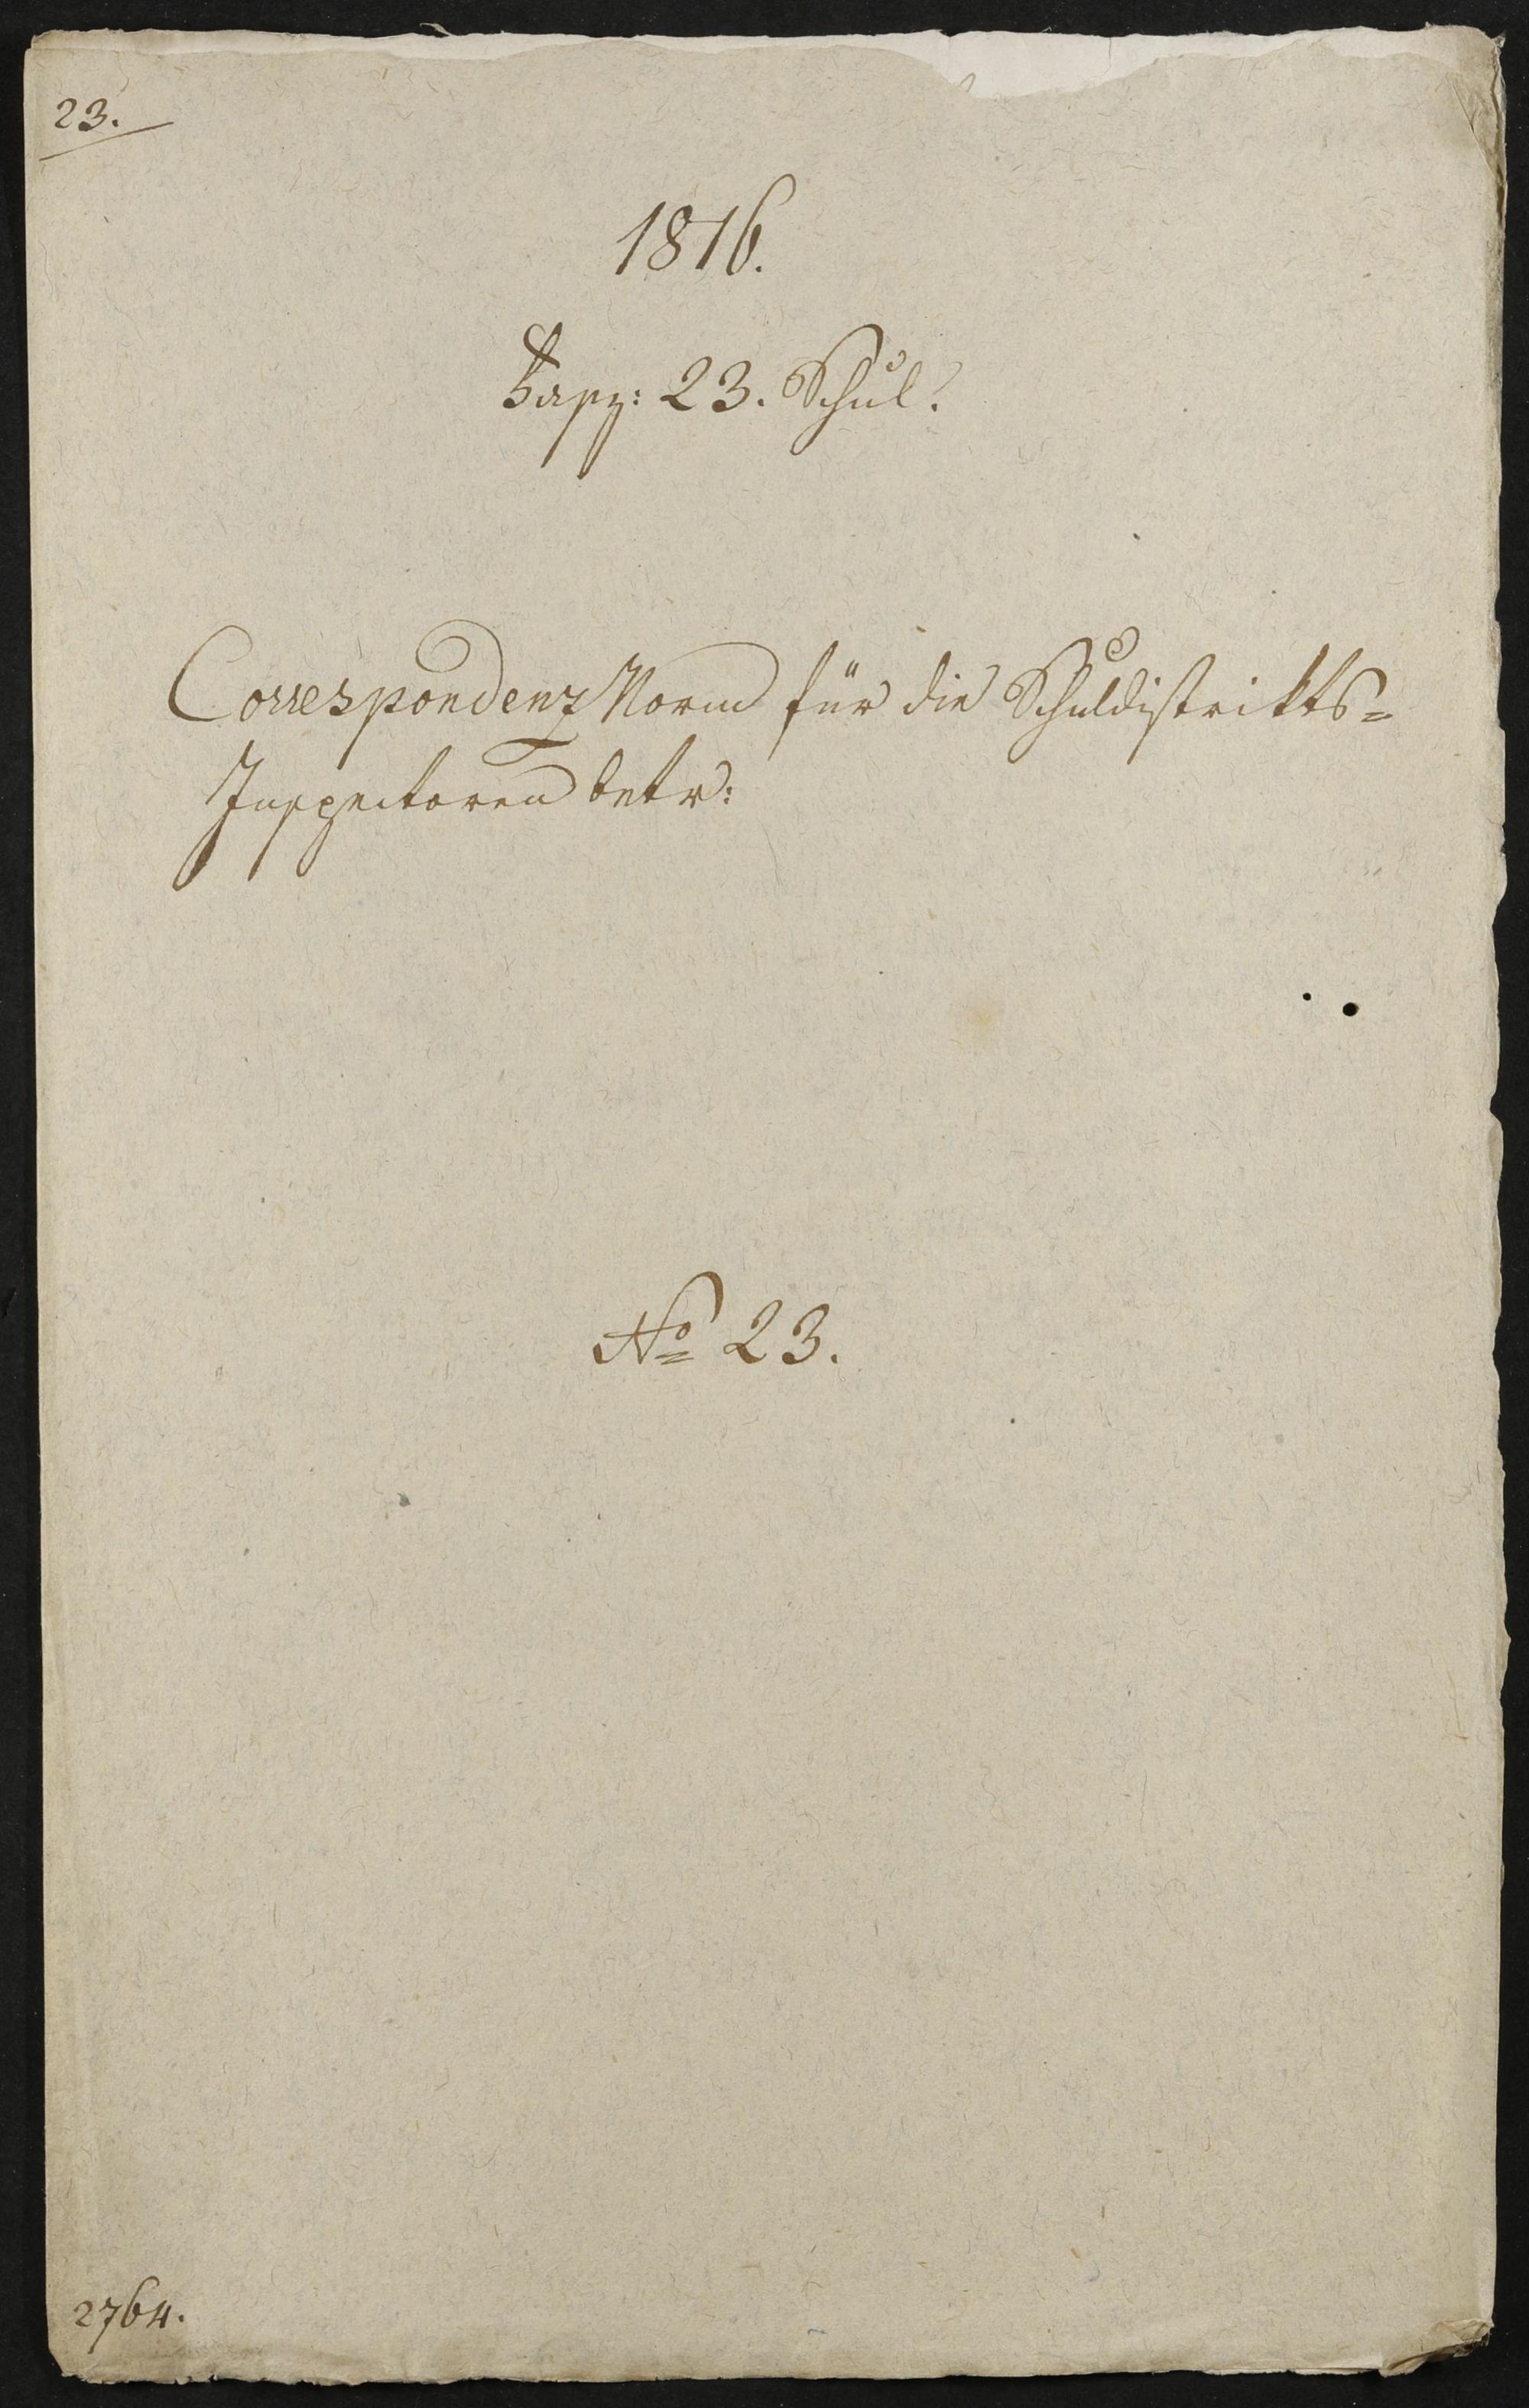 23.
1816.
Fasz: 23. Schul.
Correspondenz Norm für die Schuldistrikts=
Inspectoren betr:
No 23.
2764.